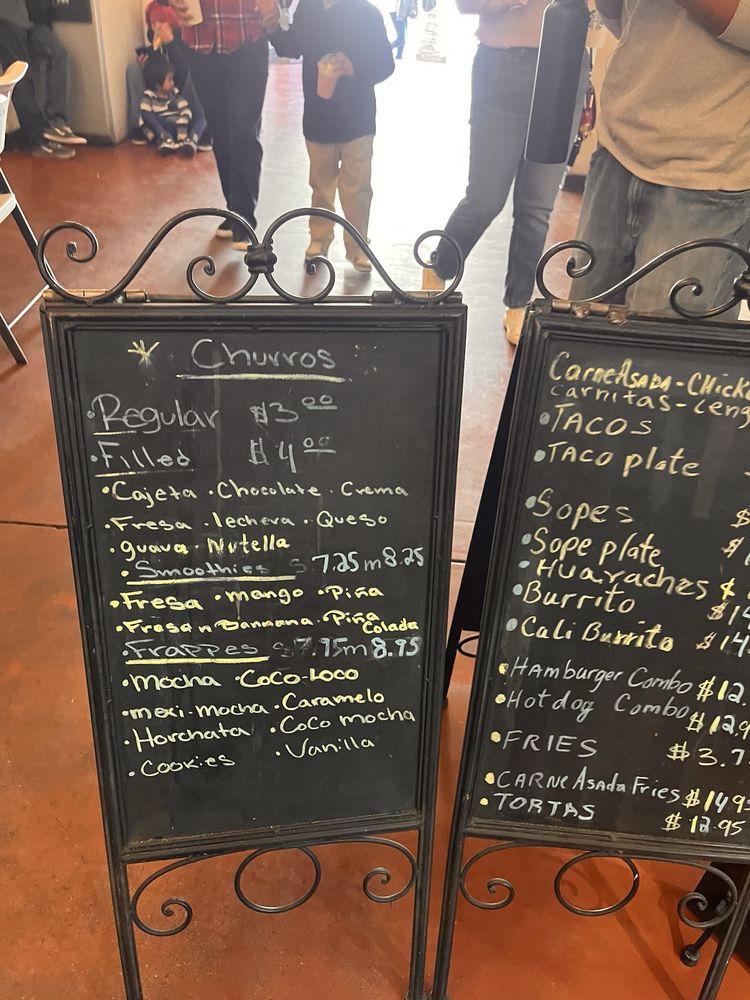 Churros
• Regular $3.00
• Filled $4.00
• Cajeta • Chocolate • Crema
• Fresa • lechera • Queso
• guava • Nutella
• Smoothies S 7.25 m 8.25
• Fresa • mango • Piña
• Fresa n Bannana • Piña Colada
• Frappes S 7.95 m 8.95
• Mocha • Coco-Loco
• mexi-mocha • Caramelo
• Horchata • CoCo mocha
• Cookies • Vanilla
Carne Asada - Chick
Carnitas - Leng
• TACOS
• TACO plate
• Sopes $
• Sope plate $
• Huaraches $
• Burrito $1
• Cali Burrito $14
• Hamburger Combo $12.
• Hotdog Combo $12.9
• FRIES $3.7
• CARNE Asada Fries $14.9
• TORTAS $12.95